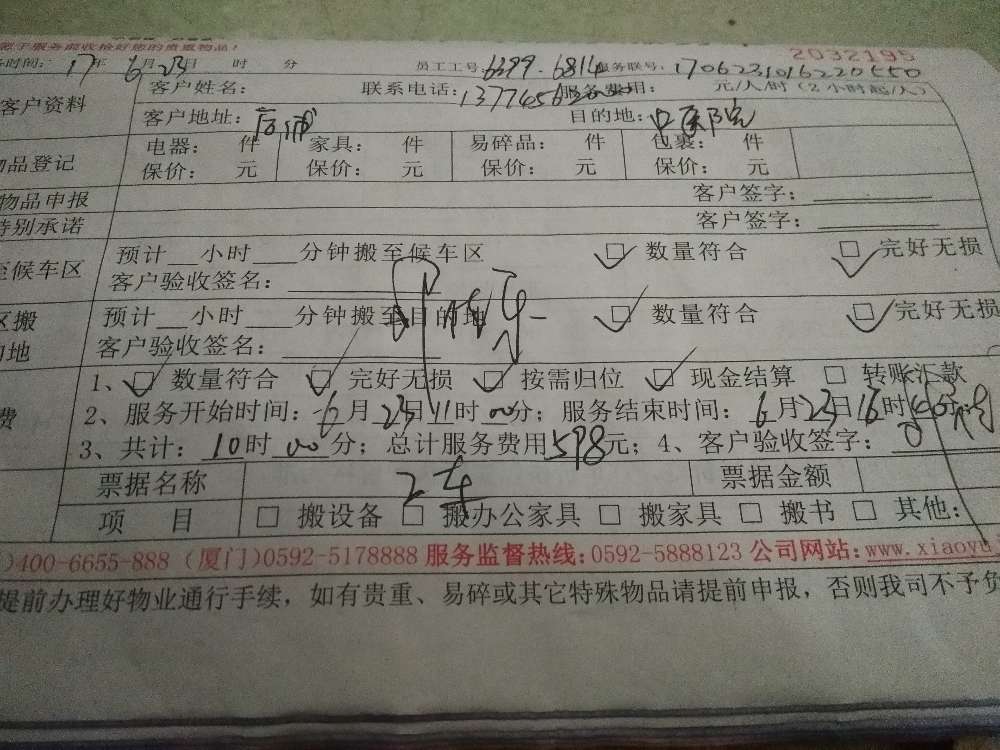 您于服务前收拾好您的贵重物品！ 2032195
务时间：17年6月23日 时 分 员工工号：6399.6814 服务联号：170623101622 0550
客户资料 客户姓名： 联系电话： 服务费用： 元/人/时（2小时起/人）
客户地址：后浦 目的地：中医院
物品登记 电器： 件 家具： 件 易碎品： 件 包裹： 件
保价： 元 保价： 元 保价： 元 保价： 元
物品申报 客户签字：
特别承诺 客户签字：
至候车区 预计 小时 分钟搬至候车区 数量符合 完好无损
客户验收签名：
区搬 预计 小时 分钟搬至目的地 数量符合 完好无损
的地 客户验收签名：
1、 数量符合 完好无损 按需归位 现金结算 转账汇款
费 2、服务开始时间：6月23日11时00分；服务结束时间：6月23日16时 分
3、共计：10时00分；总计服务费用598元；4、客户验收签字：
票据名称 2车 票据金额
项 目 搬设备 搬办公家具 搬家具 搬书 其他：
)400-6655-888 (厦门)0592-5178888 服务监督热线：0592-5888123 公司网站：www.xiaoyu
提前办理好物业通行手续，如有贵重、易碎或其它特殊物品请提前申报，否则我司不予负